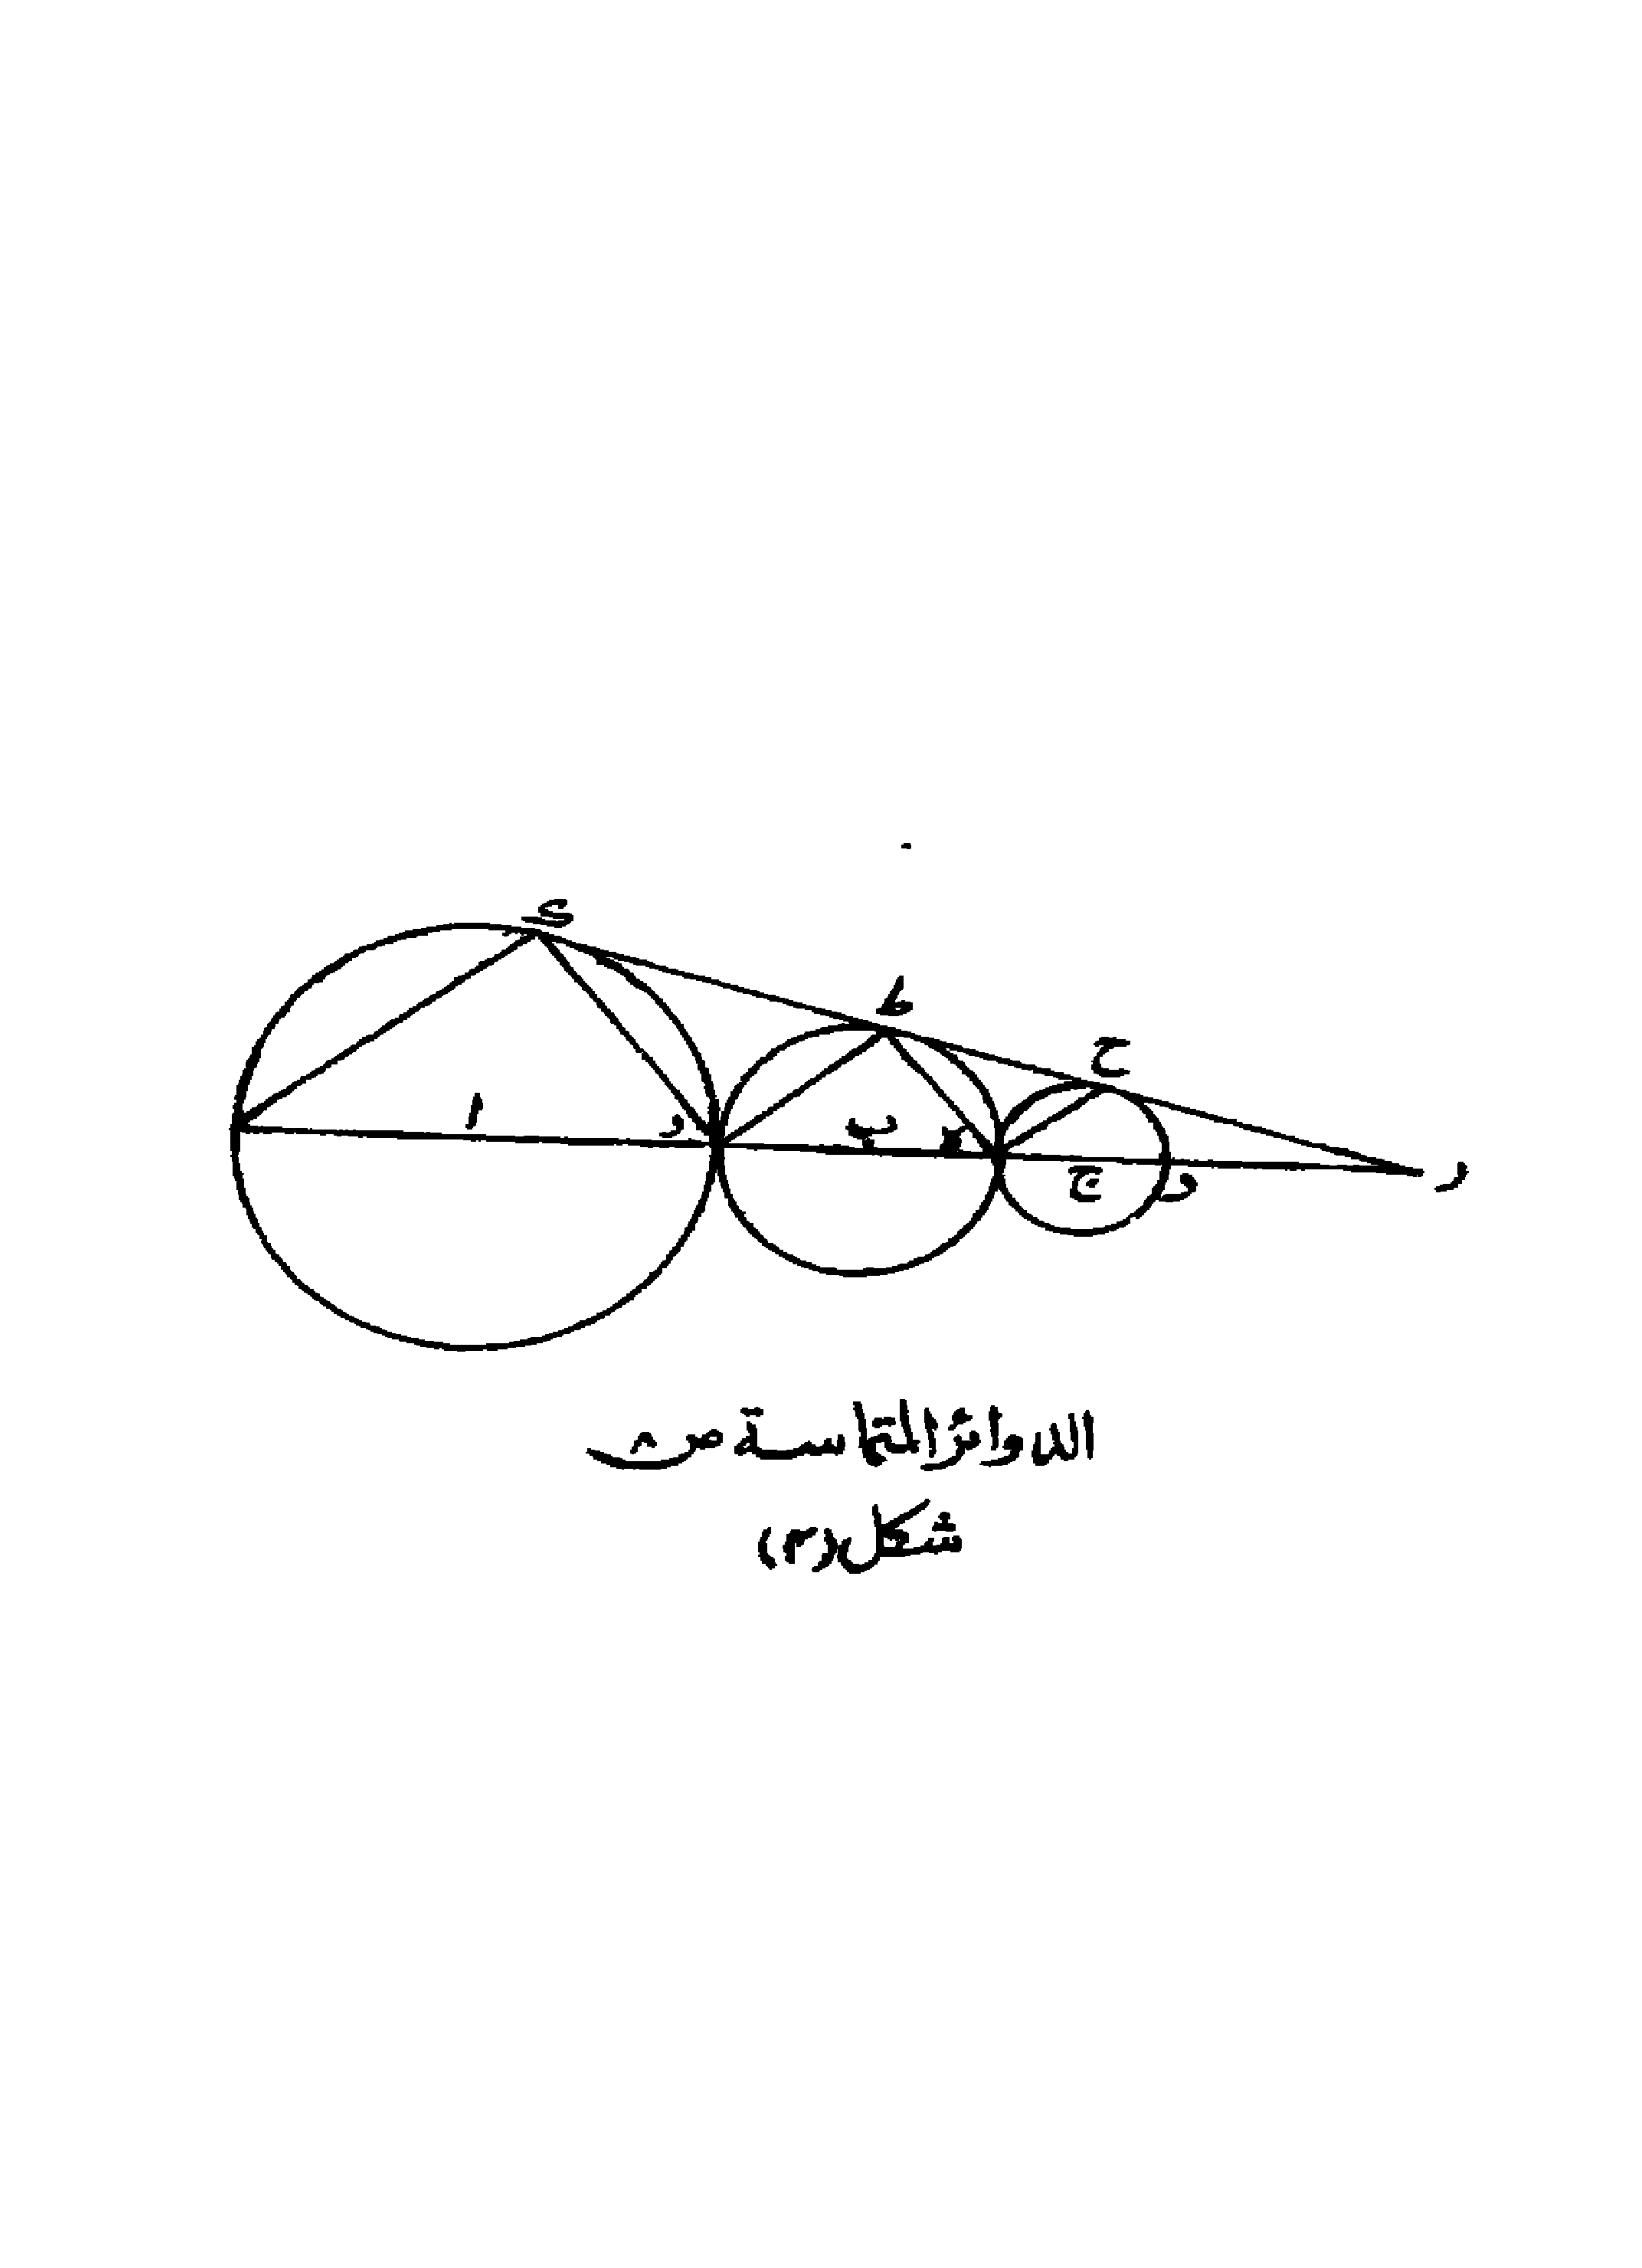 ى
ط
ح
ا
د
ب
ج
و
ر
الدوائر المتماسة ص ٨
شكل (٣)